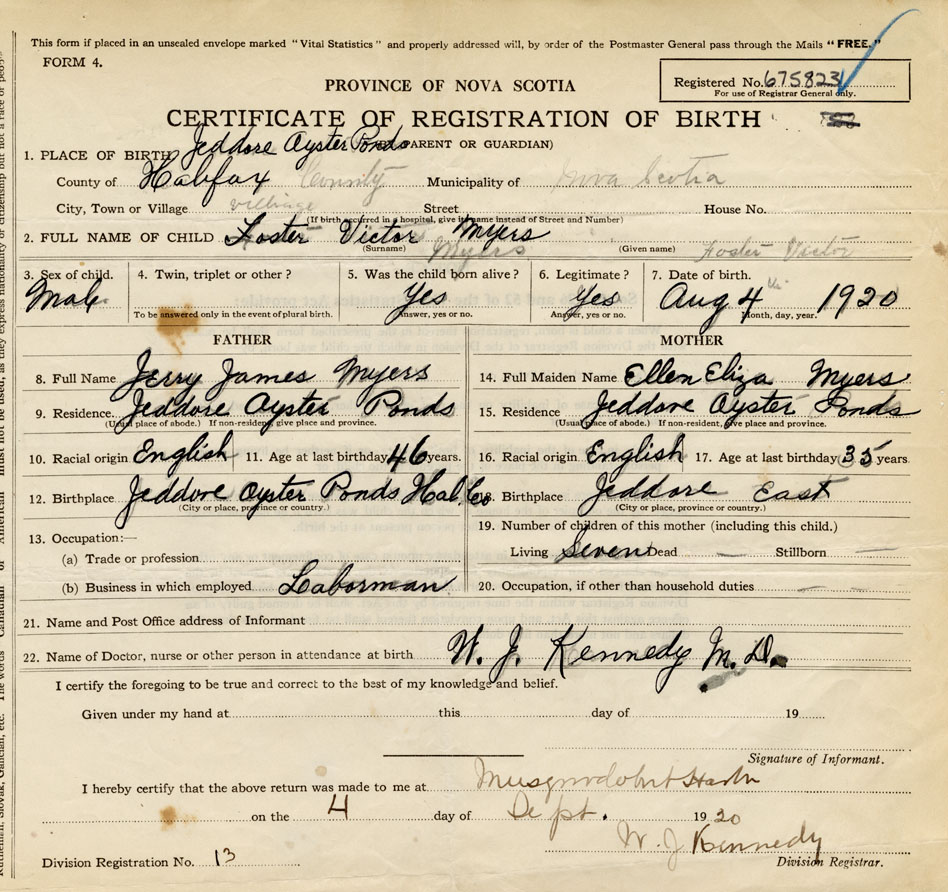 This form if placed in an unsealed envelope marked "Vital Statistics" and properly addressed will, by order of the Postmaster General pass through the Mails "FREE."
FORM 4.
Registered No. 675823
For use of Registrar General only.
PROVINCE OF NOVA SCOTIA
CERTIFICATE OF REGISTRATION OF BIRTH
PARENT OR GUARDIAN)
1. PLACE OF BIRTH Jeddore Oyster Ponds
County of Halifax County Municipality of Nova Scotia
City, Town or Village village Street House No.
(If birth occurred in a hospital, give its name instead of Street and Number)
2. FULL NAME OF CHILD Foster Victor Myers
(Surname) Myers (Given name) Foster Victor
3. Sex of child. 4. Twin, triplet or other? 5. Was the child born alive? 6. Legitimate? 7. Date of birth.
Male Yes Yes Aug 4th 1920
To be answered only in the event of plural birth. Answer, yes or no. Answer, yes or no. Month, day, year.
FATHER MOTHER
8. Full Name Jerry James Myers 14. Full Maiden Name Ellen Eliza Myers
9. Residence. Jeddore Oyster Ponds 15. Residence Jeddore Oyster Ponds
(Usual place of abode.) If non-resident, give place and province. (Usual place of abode.) If non-resident, give place and province.
10. Racial origin English 11. Age at last birthday 46 years. 16. Racial origin English 17. Age at last birthday 35 years.
12. Birthplace Jeddore Oyster Ponds Hal. Co 18. Birthplace Jeddore East
(City or place, province or country.) (City or place, province or country.)
13. Occupation:— 19. Number of children of this mother (including this child.)
(a) Trade or profession Living Seven Dead — Stillborn —
(b) Business in which employed Laborman 20. Occupation, if other than household duties — —
21. Name and Post Office address of Informant
22. Name of Doctor, nurse or other person in attendance at birth W. J. Kennedy M. D.
I certify the foregoing to be true and correct to the best of my knowledge and belief.
Given under my hand at this day of 19
Signature of Informant.
I hereby certify that the above return was made to me at Musquodoboit Harbor
on the 4 day of Sept. 1920
W. J Kennedy
Division Registration No. 13 Division Registrar.